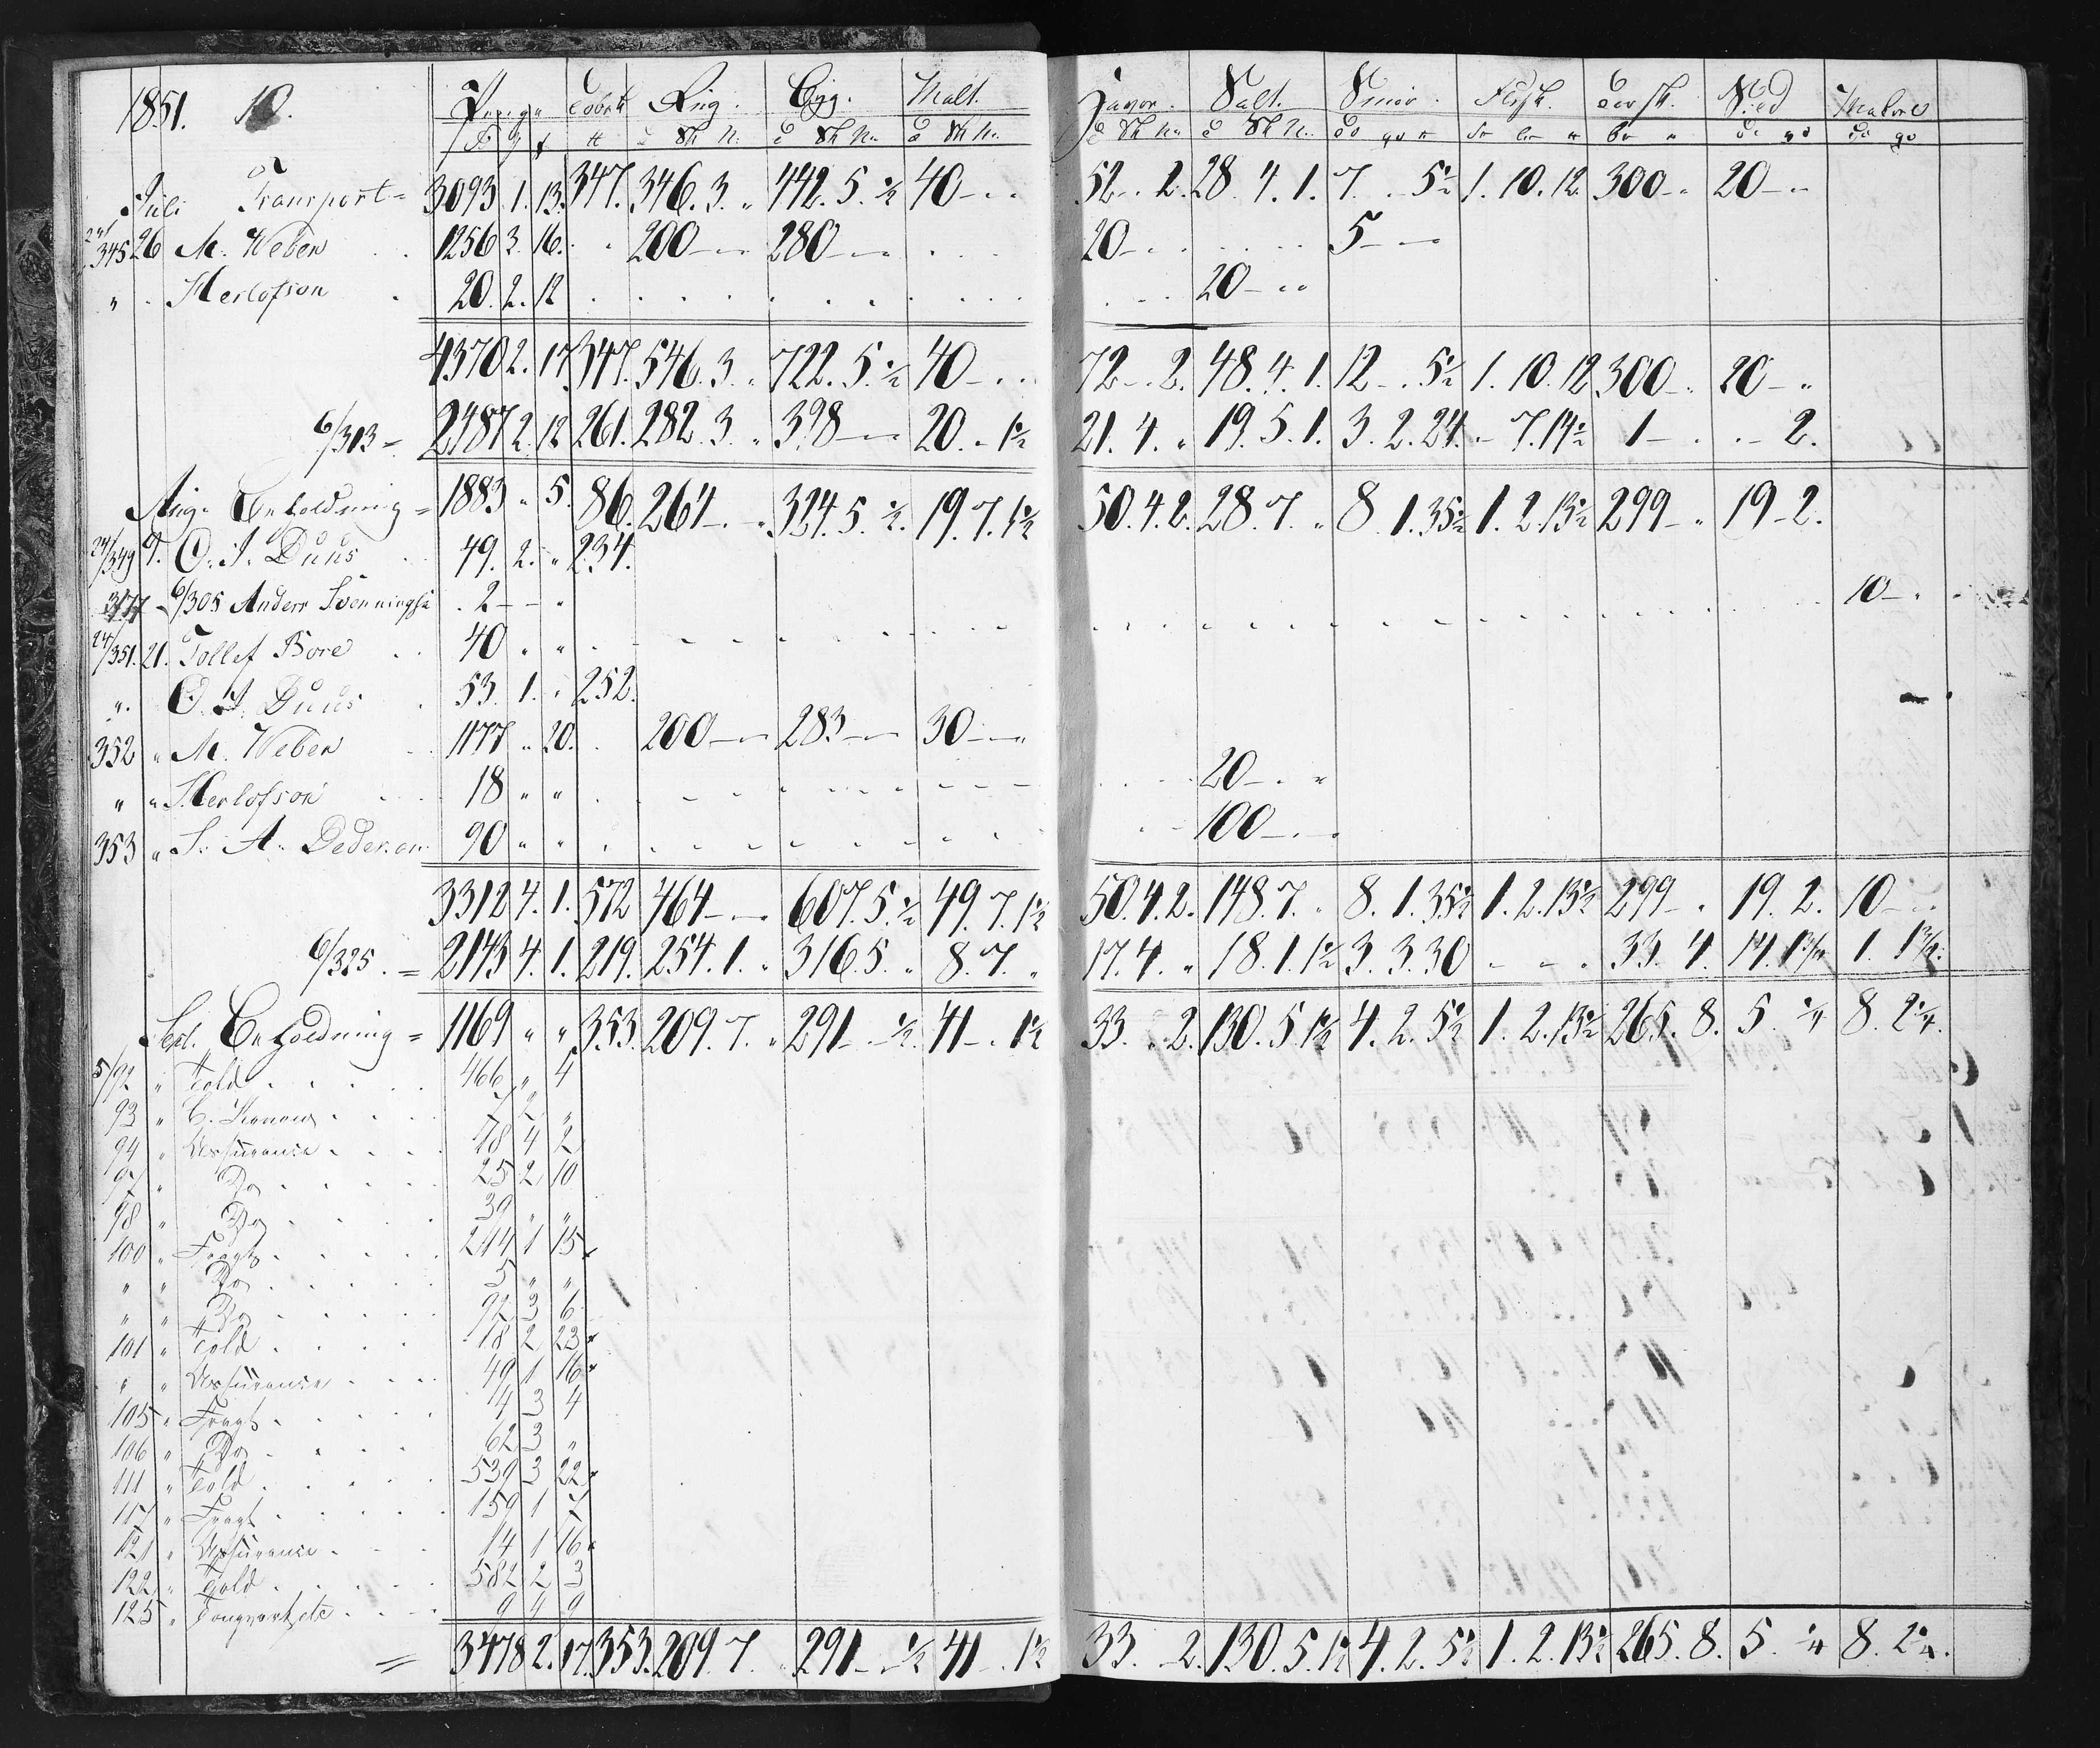 1851. 10. Penge Tobak Rug. Byg. Malt. Havre. Salt. Smör. Flesk. Törfisk. Sild Makrel
Juli Transport = 3093. 1. 13. 347. 346. 3. " 442. 5. ½ 40 - . . 52 - . 2. 28. 4. 1. 7. . 5½ 1. 10. 12. 300 - . 20 - .
24/345 26 M. Weber 1256 3. 16. 200 - " 280 - " 20 - . 5 - "
" . Herlofson 20. 2. 12 20 - . .
4370 2. 17 347. 546. 3. " 722. 5. ½ 40 - . . 72 - . 2. 48. 4. 1. 12 - . 5½ 1. 10. 12 300 - . 20 - "
6/313 = 2487 2. 12 261. 282. 3. " 398 - " 20. - 1½ 21. 4. " 19. 5. 1. 3. 2. 24. - 7. 14½ 1 - . . - 2.
Aug. Beholdning = 1883 " 5. 86. 264 - . " 324. 5. ½. 19. 7. 1½ 50. 4. 2. 28. 7. " 8. 1. 35½ 1. 2. 13½ 299 - " 19 - 2.
24/349 9. O. J. Duus 49. 2. " 234.
317 - 6/305 Anders Svenningsen . 2 - - " 10 - .
24/351. 21. Tollef Bore 40 " "
". O. J. Duus 53. 1. . 252.
352 " M. Weber 1177 " 20. 200 - " 283 - " 30 - "
" " Herlofson 18 " " 20 - . "
353 " S. A. Pedersen 90 " " 100 - . -
3312 4. 1. 572 464 - - 607. 5. ½ 49. 7. 1½ 50. 4. 2. 148. 7. " 8. 1. 35½ 1. 2. 13½ 299 - . 19. 2. 10 - .
6/325. = 2143 4. 1. 219. 254. 1. " 316 5. " 8. 7. " 17. 4. " 18. 1. 1½ 3. 3. 30 - - . 33. 4. 14. 1¾ 1. 1¾.
Sept. Beholdning = 1169 " " 353. 209. 7. " 291 - - ½. 41 - . 1½ 33. . 2. 130. 5. 1½ 4. 2. 5½ 1. 2. 13½ 265. 8. 5. ¼ 8. 2¼.
5/92 " Told 466 " 4
93 " C. Konow 7 2 "
94 " Assurance 78 4 2
97 " Do 25 2 10
98 " Do 39 " "
100 " Fragt 244 1 15
" " Do 5 " "
" " Do 92 3 6
101 " Told 18 2 23
" " Assurance 49 1 16
105 " Fragt 4 3 4
106 " Do 62 3 "
111 " Told 539 3 22
117 " Fragt 159 1 7
121 " Assurance 14 1 16
122 " Told 582 2 3
125 " Tougverk etc 9 4 9
= 3478 2. 17. 353. 209. 7. " 291 - - ½ 41 - . 1½ 33. . 2. 130. 5. 1½ 4. 2. 5½ 1. 2. 13½ 265. 8. 5. ¼ 8. 2¼.